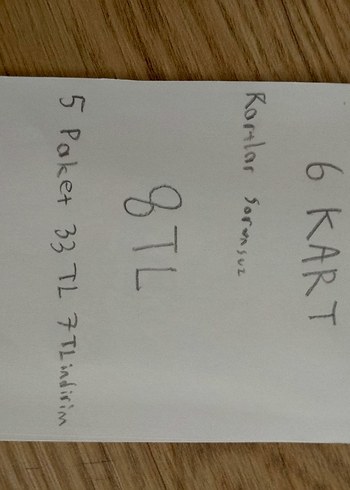 6 KART
Kartlar Sorunsuz
8 TL
5 Paket 33 TL 7 TL indirim